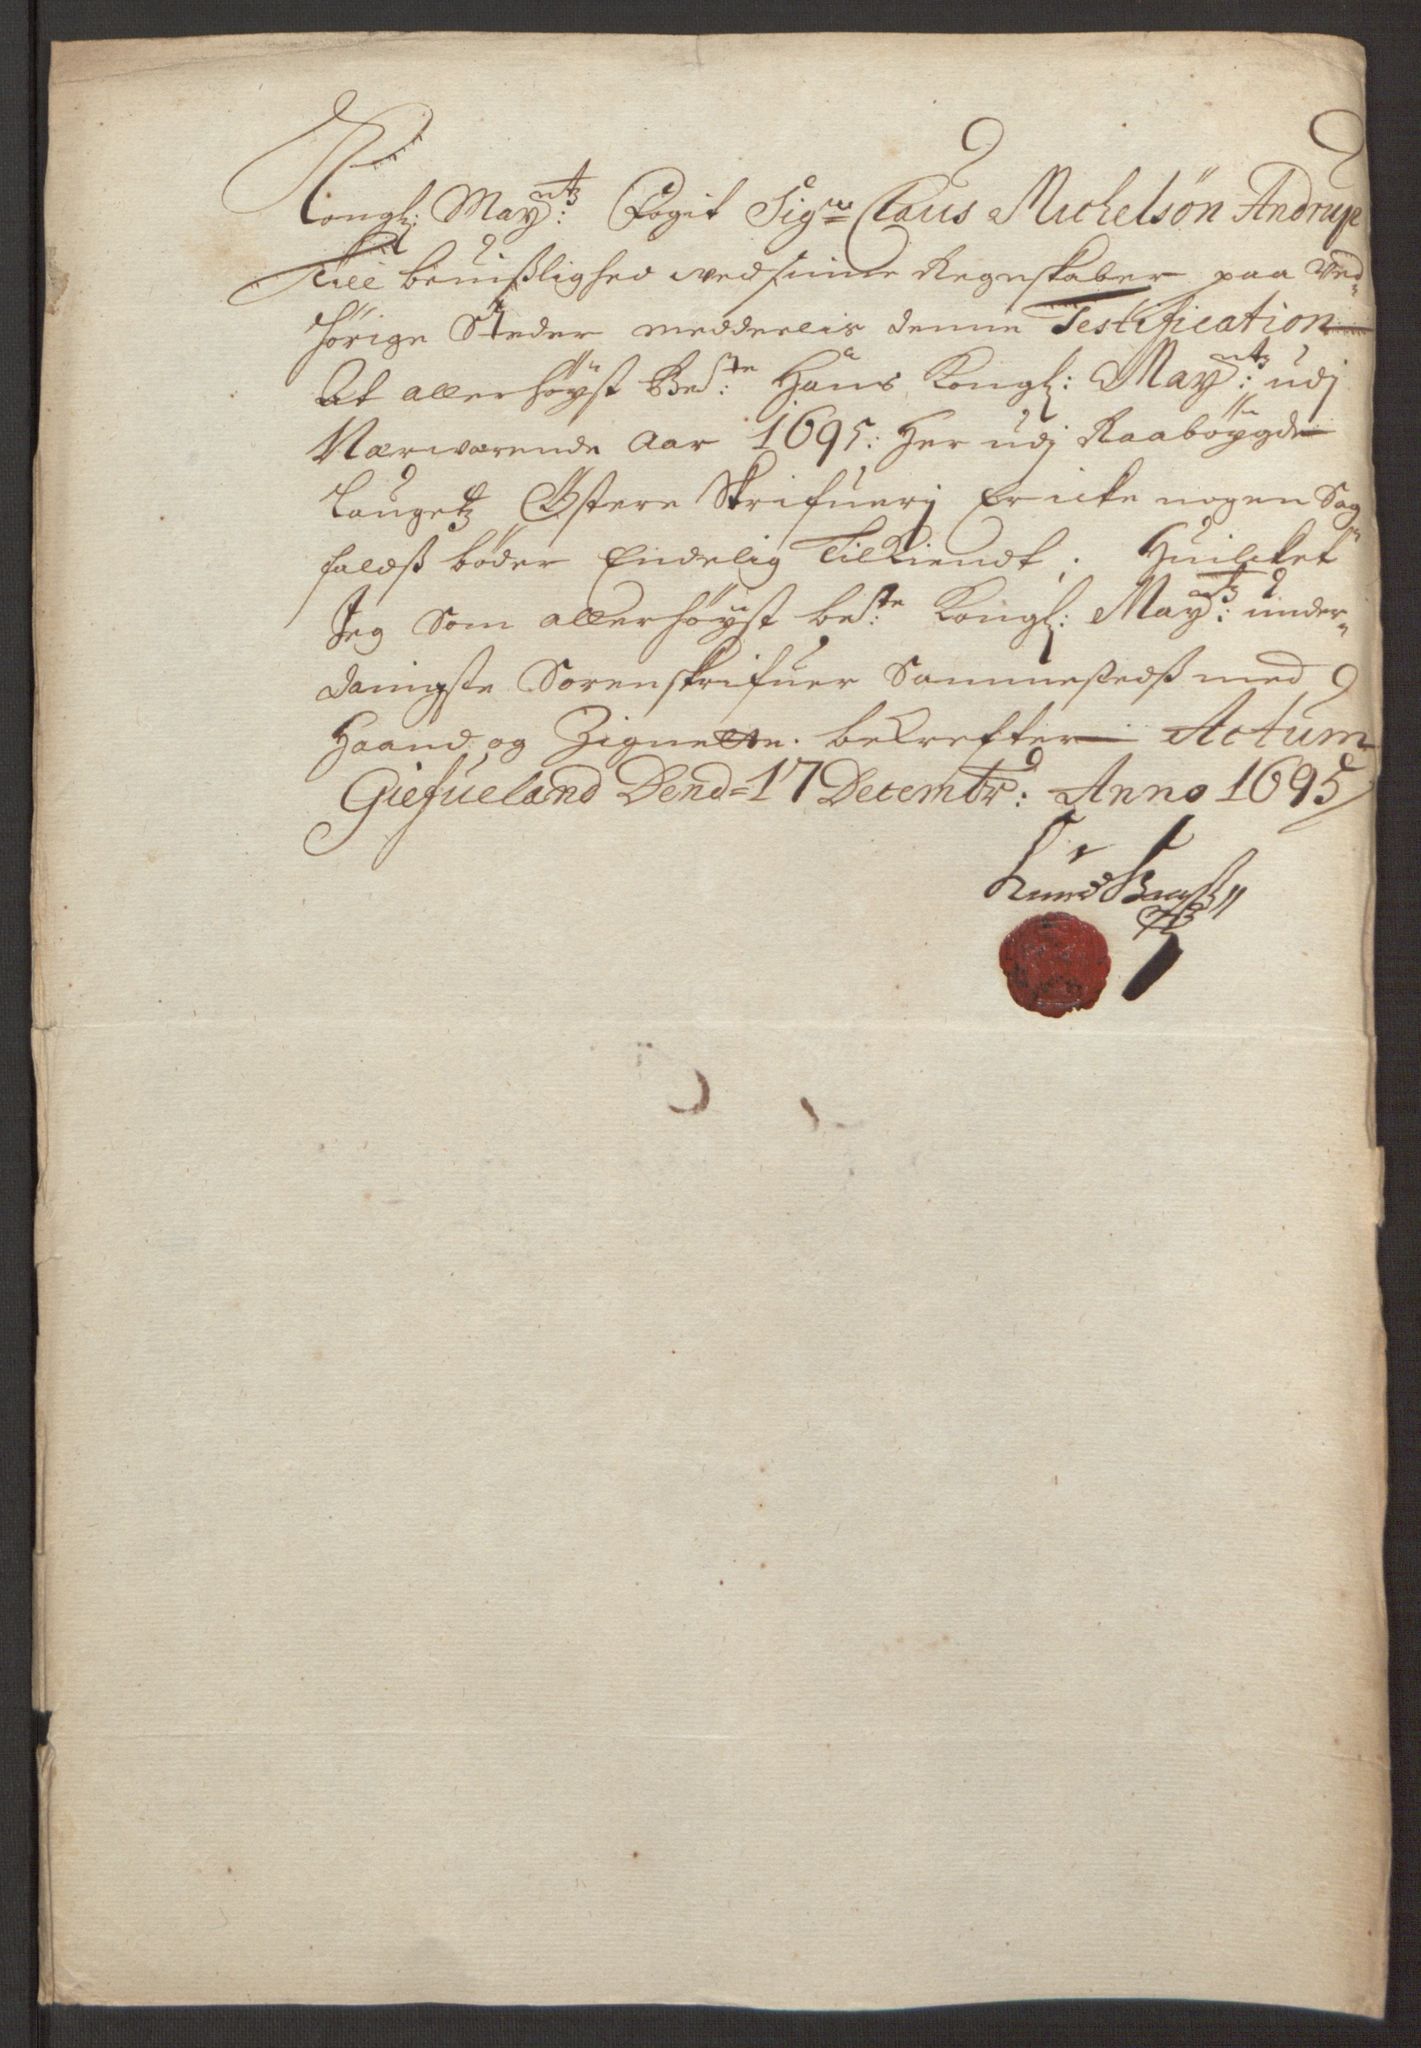 Kongl: May:ntz Fogit Sigr Claus Michelsön Andrup
Till beuißlighed ved sinne Regnskaber paa Ved-
hörige Steder meddeelis denne Testification
At allerhöyst Be:ste Hans Kongl: May:ntz udj
Nærværende Aar 1695: Her udj Raabÿgde
Laugetz Østere Skrifuerj Er icke nogen Sag-
faldß bøder Endelig Tilkiendt; Huilcket
Jeg Som allerhöyst be:ste Kongl: May:ntz under-
danigste Sorenskrifuer Sammestedß med
Haand og Zignette bekrefter Actum
Giefueland Dend=17 Decembr: Anno 1695